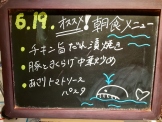 6.19. オススメ! 朝食メニュー
・チキン旨だれ漬け焼き
・豚ときくらげ中華炒め
・あさりトマトソース
パスタ